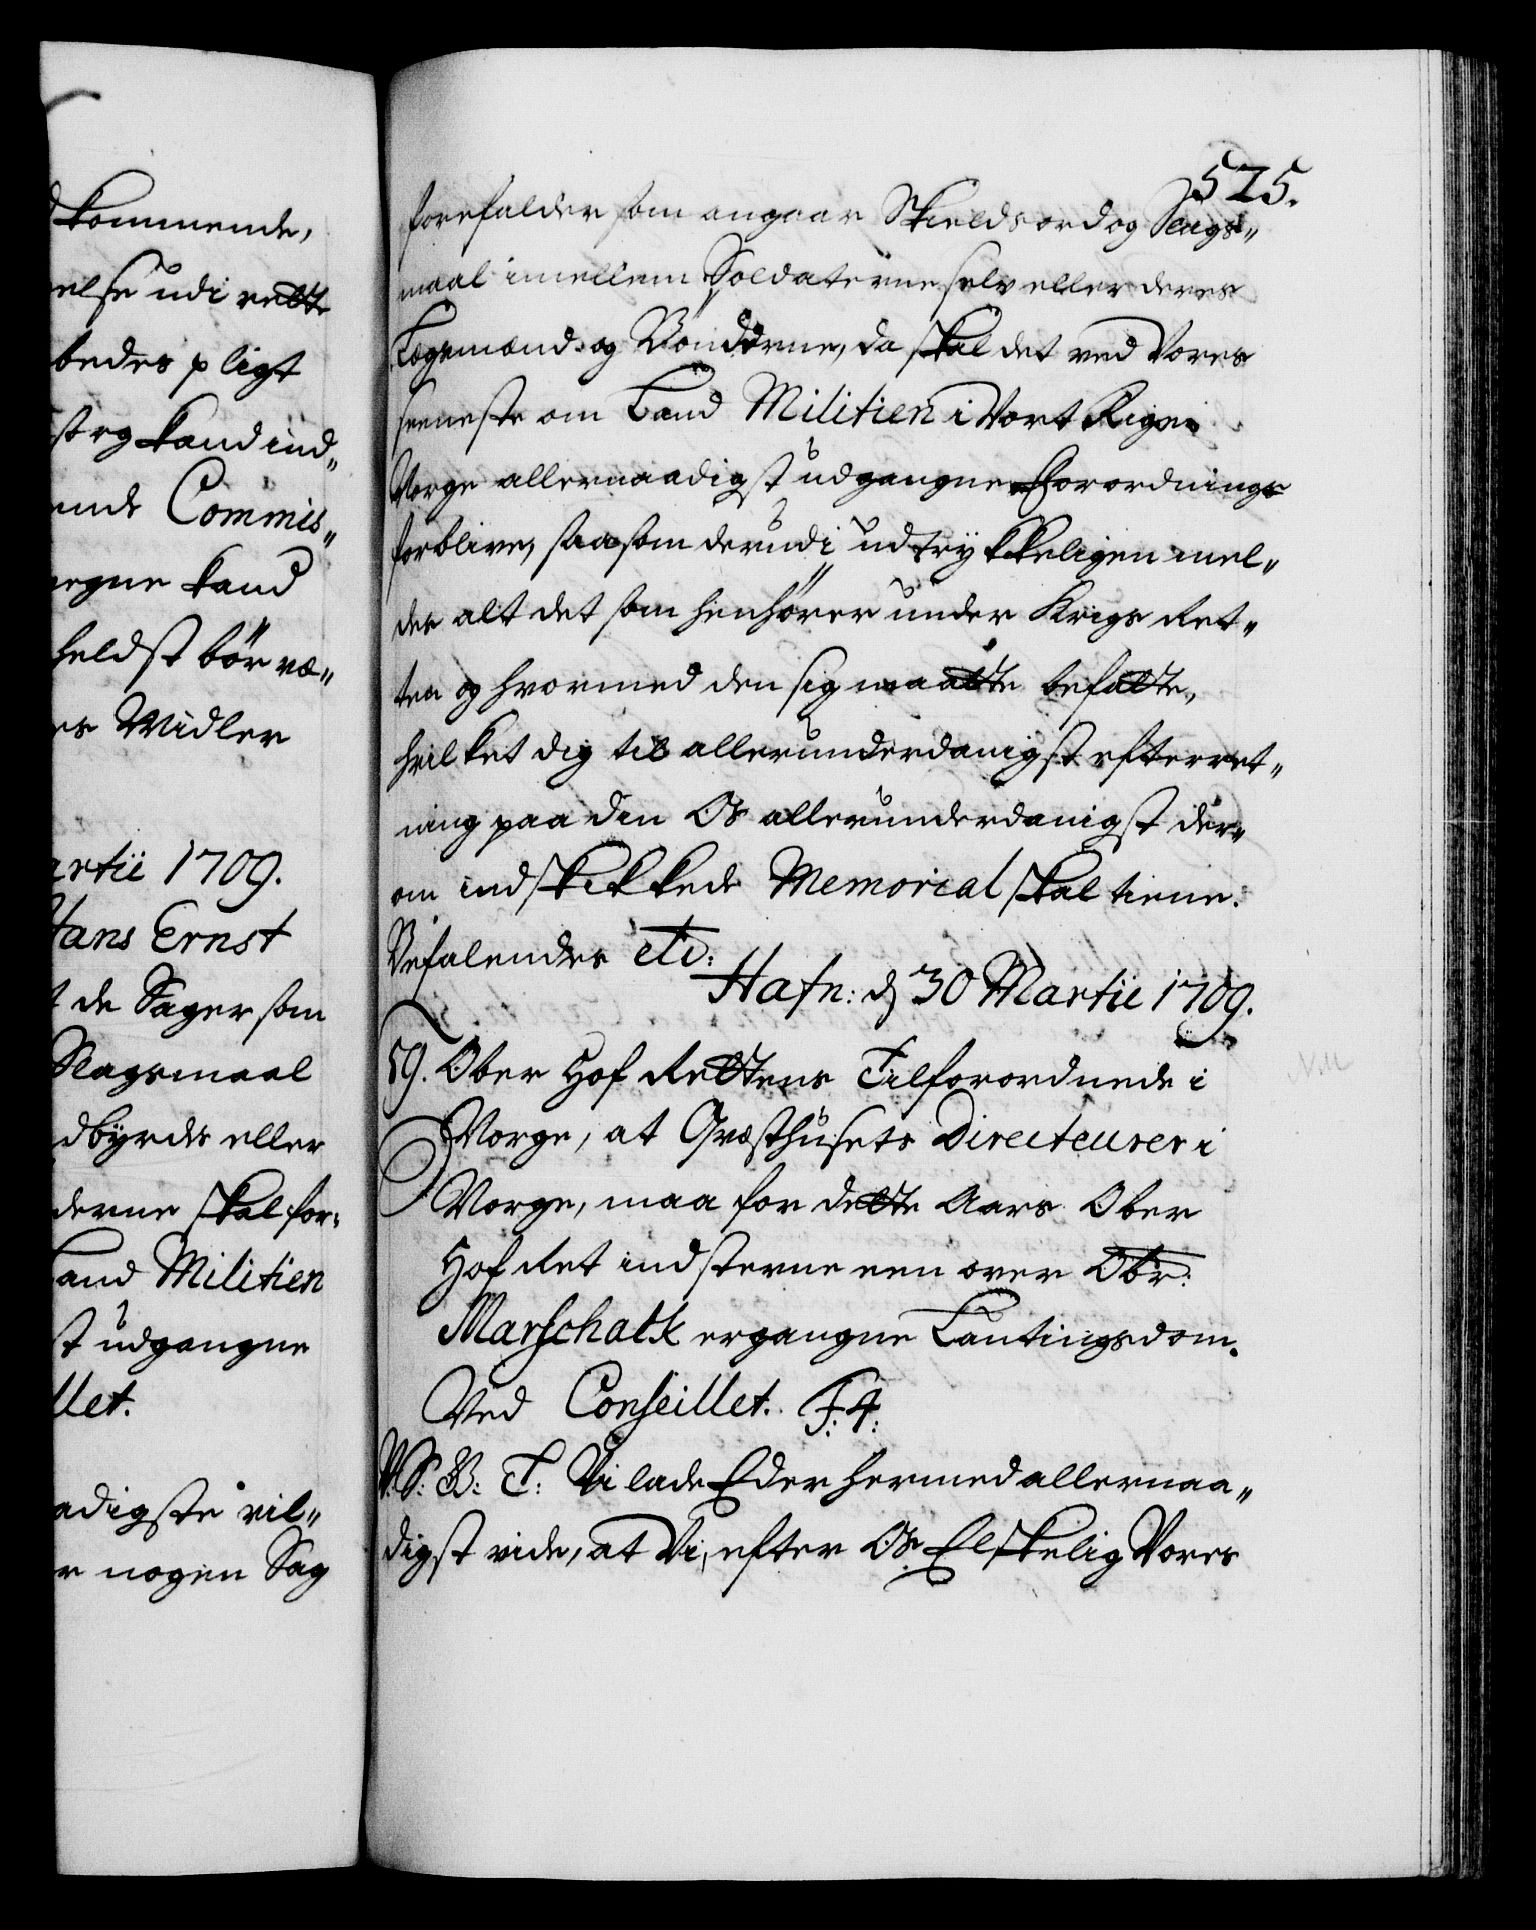 dkommende,
else udi rette
bedes pligt
st og kand ind„
ende Commis„
egne kand
heldst bör væ„
es Midler
artii 1709.
Hans Ernst
t de Sager som
Slagsmaal
dbyrdes eller
derne skal for:
Land Militien
st udgangne
llet.
adigste vil„
r nogen Sag
525.
forefalder som angaar Skieldsord og Slags„
maal imellem Soldaterne selv eller deres
Lægsmænd og Bönderne, da skal det ved Vores
seeneste om Land Militien i Vort Rige
Norge allernaadigst udgangne Forordning
forblive, saasom derudi udtrykkeligen mel„
des alt det som henhører under Krigs Ret„
ten og hvormed den sig maatte befatte,
hvilket dig til allerunderdanigst efterret„
ning paa den Os allerunderdanigst der„
om indskikkede Memorial skal tiene.
Befalendes etc:
Hafn: d 30 Martii 1709.
59. Ober Hof Rettens Tilforordnede i
Norge, at Qvæsthusets Directeurer i
Norge, maa for dette Aars Ober
Hof Ret indsteevne een over Obr:
Marschalk ergangne Lautingsdom.
Ved Conseillet. F: 4:
V. S: B: T: Vi lade Eder hermed allernaa„
digst vide, at Vi, efter Os Elskelig Vores